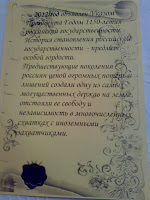 2012 год объявлен Указом
Президента Годом 1150-летия
российской государственности.
История становления российской
государственности - предмет
особой гордости.
Предшествующие поколения
россиян ценой огромных потерь и
лишений создали одну из самых
могущественных держав на земле,
отстояли ее свободу и
независимость в многочисленных
схватках с иноземными
захватчиками.